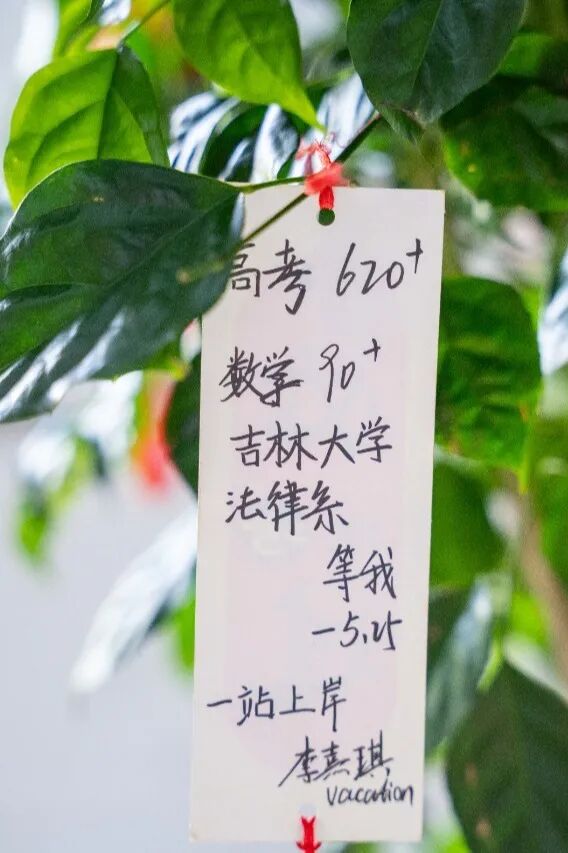 高考 620+
数学 90+
吉林大学
法律系
等我
-5.25
一站上岸
李熹琪
vacation